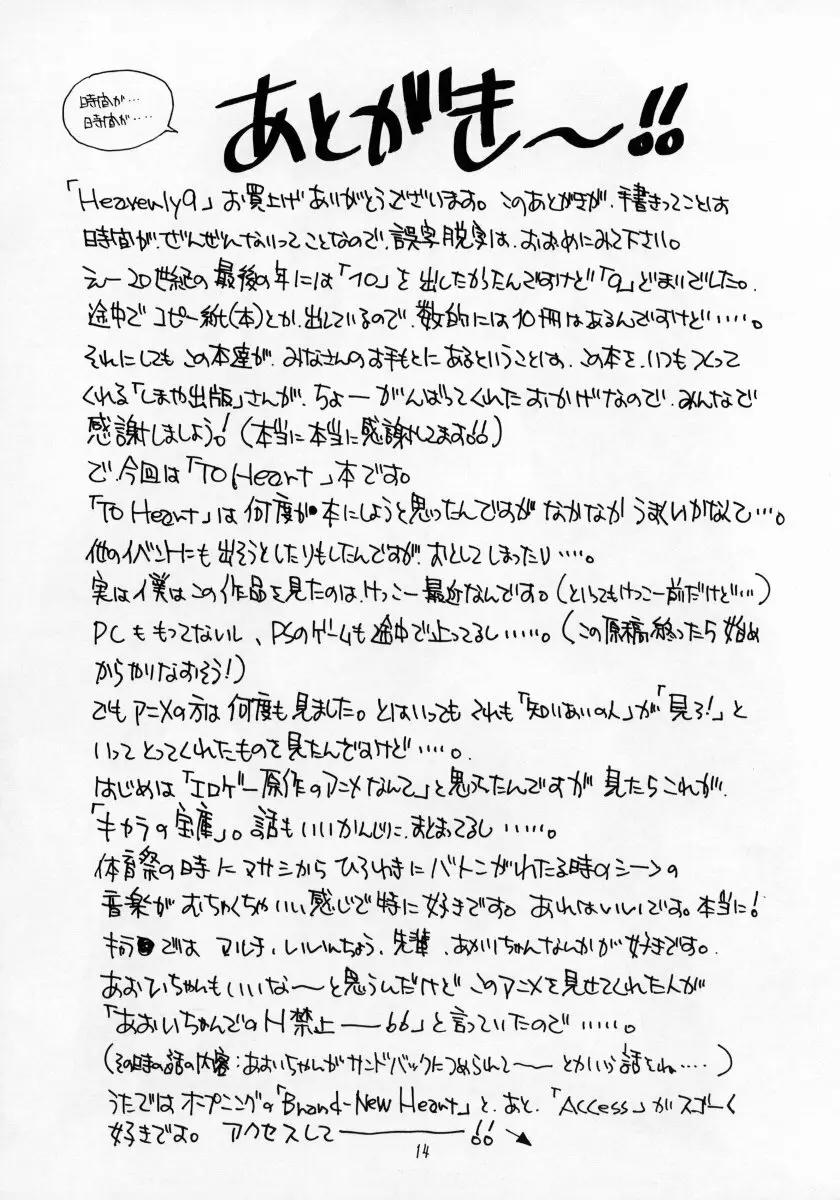 時間が…
時間が…‥
あとがき〜!!
「Heavenly9」お買上げありがとうございます。このあとがきが、手書きってことは
時間が、ぜんぜんないってことなので、誤字脱字は、おおめにみて下さい。
えー20世紀の最後の年には「10」を出したかったんですけど「9」どまりでした。
途中でコピー紙(本)とか、出しているので、数的には10冊はあるんですけど……。
それにしてもこの本達が、みなさんのお手もとにあるということは、この本を、いつもつくって
くれる「しまや出版」さんが、ちょーがんばってくれたおかげなので、みんなで
感謝しましよう!(本当に本当に感謝してます!!)
で、今回は「To Heart」本です。
「To Heart」は何度か本にしようと思ったんですがなかなかうまくいかなくて…。
他のイベントにも出そうとしたりもしたんですが、おとしてしまったり……。
実は僕はこの作品を見たのは、けっこー最近なんです。(といってもけっこー前だけど…)
PCももってないし、PSのゲームも途中で止ってるし……。(この原稿終ったら始め
からやりなおそう!)
でもアニメの方は何度も見ました。とはいってもそれも「知りあいの人」が「見ろ!」と
いってとってくれたものを見たんですけど……。
はじめは「エロゲー原作のアニメなんて」と思ってたんですが見たらこれが、
「キャラの宝庫」。話もいいかんじに、まとまってるし……。
体育祭の時にマサシからひろゆきにバトンがわたる時のシーンの
音楽がむちゃくちゃいい感じで特に好きです。あれはいいです。本当に!
キャラでは マルチ、いいんちょう、先輩、あかりちゃんなんかが好きです。
あおいちゃんもいいな〜と思うんだけどこのアニメを見せてくれた人が
「あおいちゃんでのH禁止——!!」と言っていたので……。
(その時の話の内容:あおいちゃんがサンドバックにつめられて——とかいう話をね…‥)
うたではオープニングの「Brand-New Heart」と、あと、「Access」がスゴーく
好きです。アクセスして————!!
14